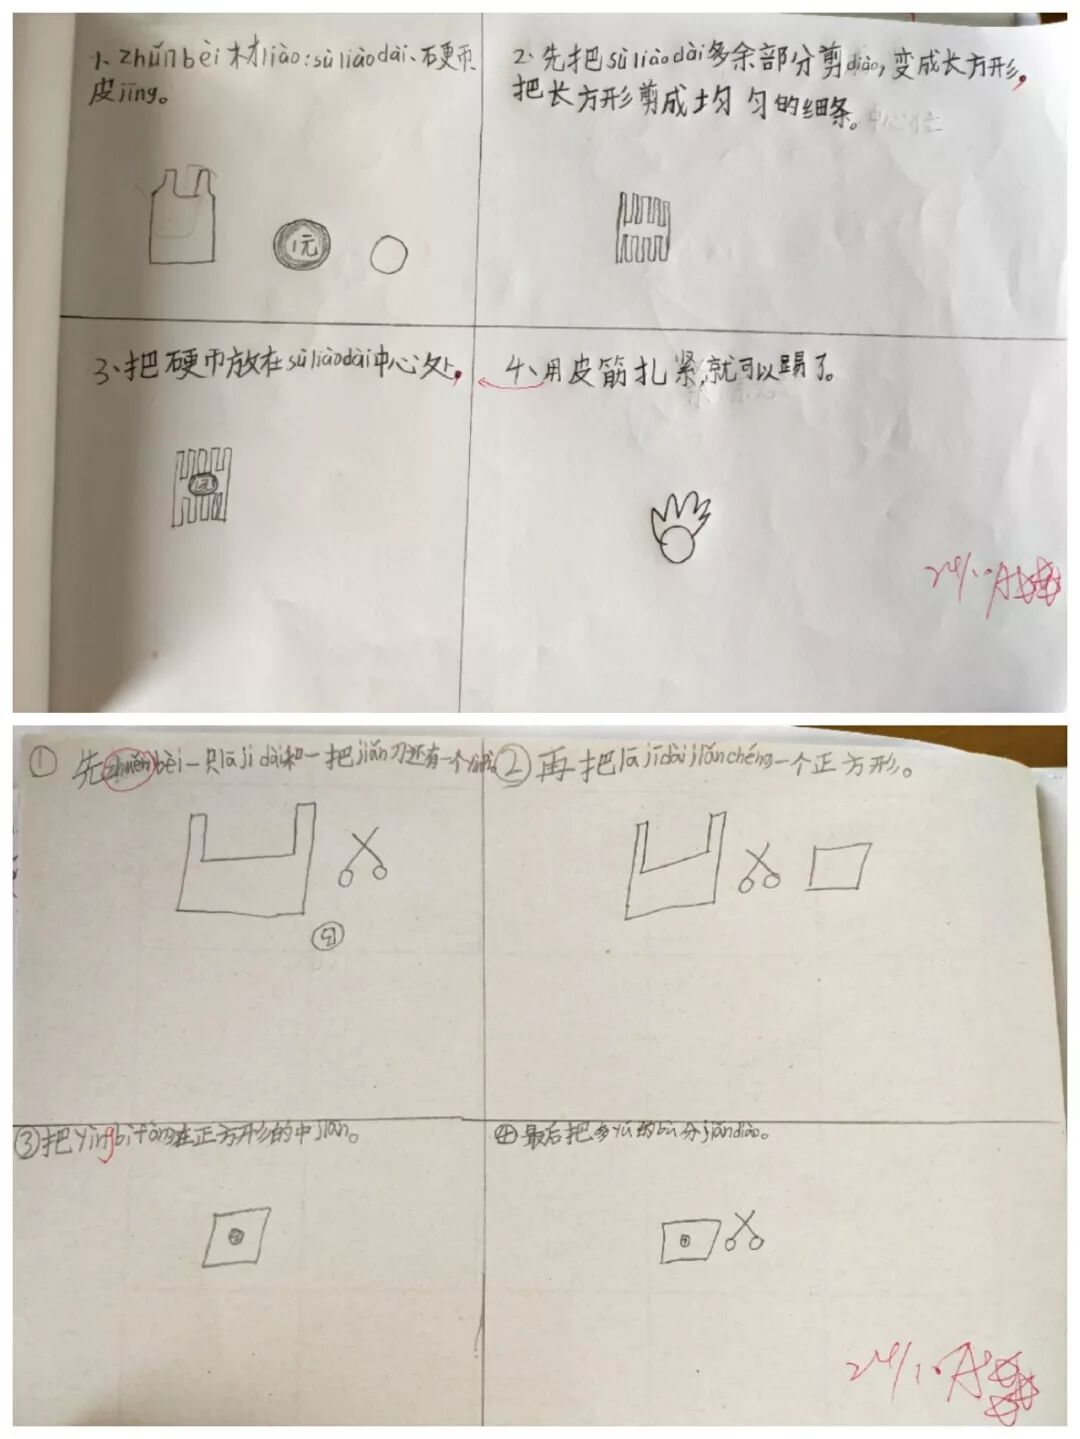 1、zhǔnbèi材liào:sùliàodài、硬币、
皮jīng。
1元
2、先把sùliàodài多余部分剪diào,变成长方形,
把长方形剪成均匀的细条。
3、把硬币放在sùliàodài中心处,
1元
4、用皮筋扎紧,就可以踢了。
24/10A
① 先zhuěnbèi一只lājīdài和一把jiǎn刀还有一个
② 再把lājīdàijiǎnchéng一个正方形。
③把yìngbìfàng在正方形的中jiān。
④最后把多yú的bù分jiǎndiào。
24/10A